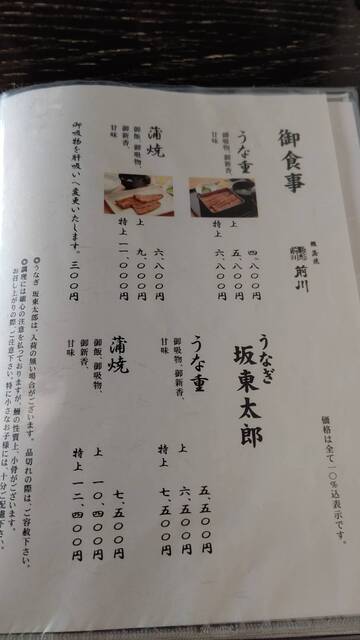 御食事
鰻蒲焼
前川
うな重
御吸物、御新香、
甘味
四、八〇〇円
上 五、八〇〇円
特上 六、八〇〇円
蒲焼
御飯、御吸物、
御新香、
甘味
六、八〇〇円
上 九、〇〇〇円
特上 一一、〇〇〇円
御吸物を肝吸いへ変更いたします。三〇〇円
価格は全て一〇％込表示です。
うなぎ
坂東太郎
うな重
御吸物、御新香、
甘味
五、五〇〇円
上 六、五〇〇円
特上 七、五〇〇円
蒲焼
御飯、御吸物、
御新香、
甘味
七、五〇〇円
上 一〇、〇〇〇円
特上 一二、〇〇〇円
◎うなぎ 坂東太郎は、入荷の無い場合がございます。品切れの際は、ご容赦下さい。
◎調理には細心の注意を払っておりますが、鰻の性質上、小骨がございます。
お召し上がりの際、ご注意下さい。特に小さなお子様には、十分ご配慮下さい。